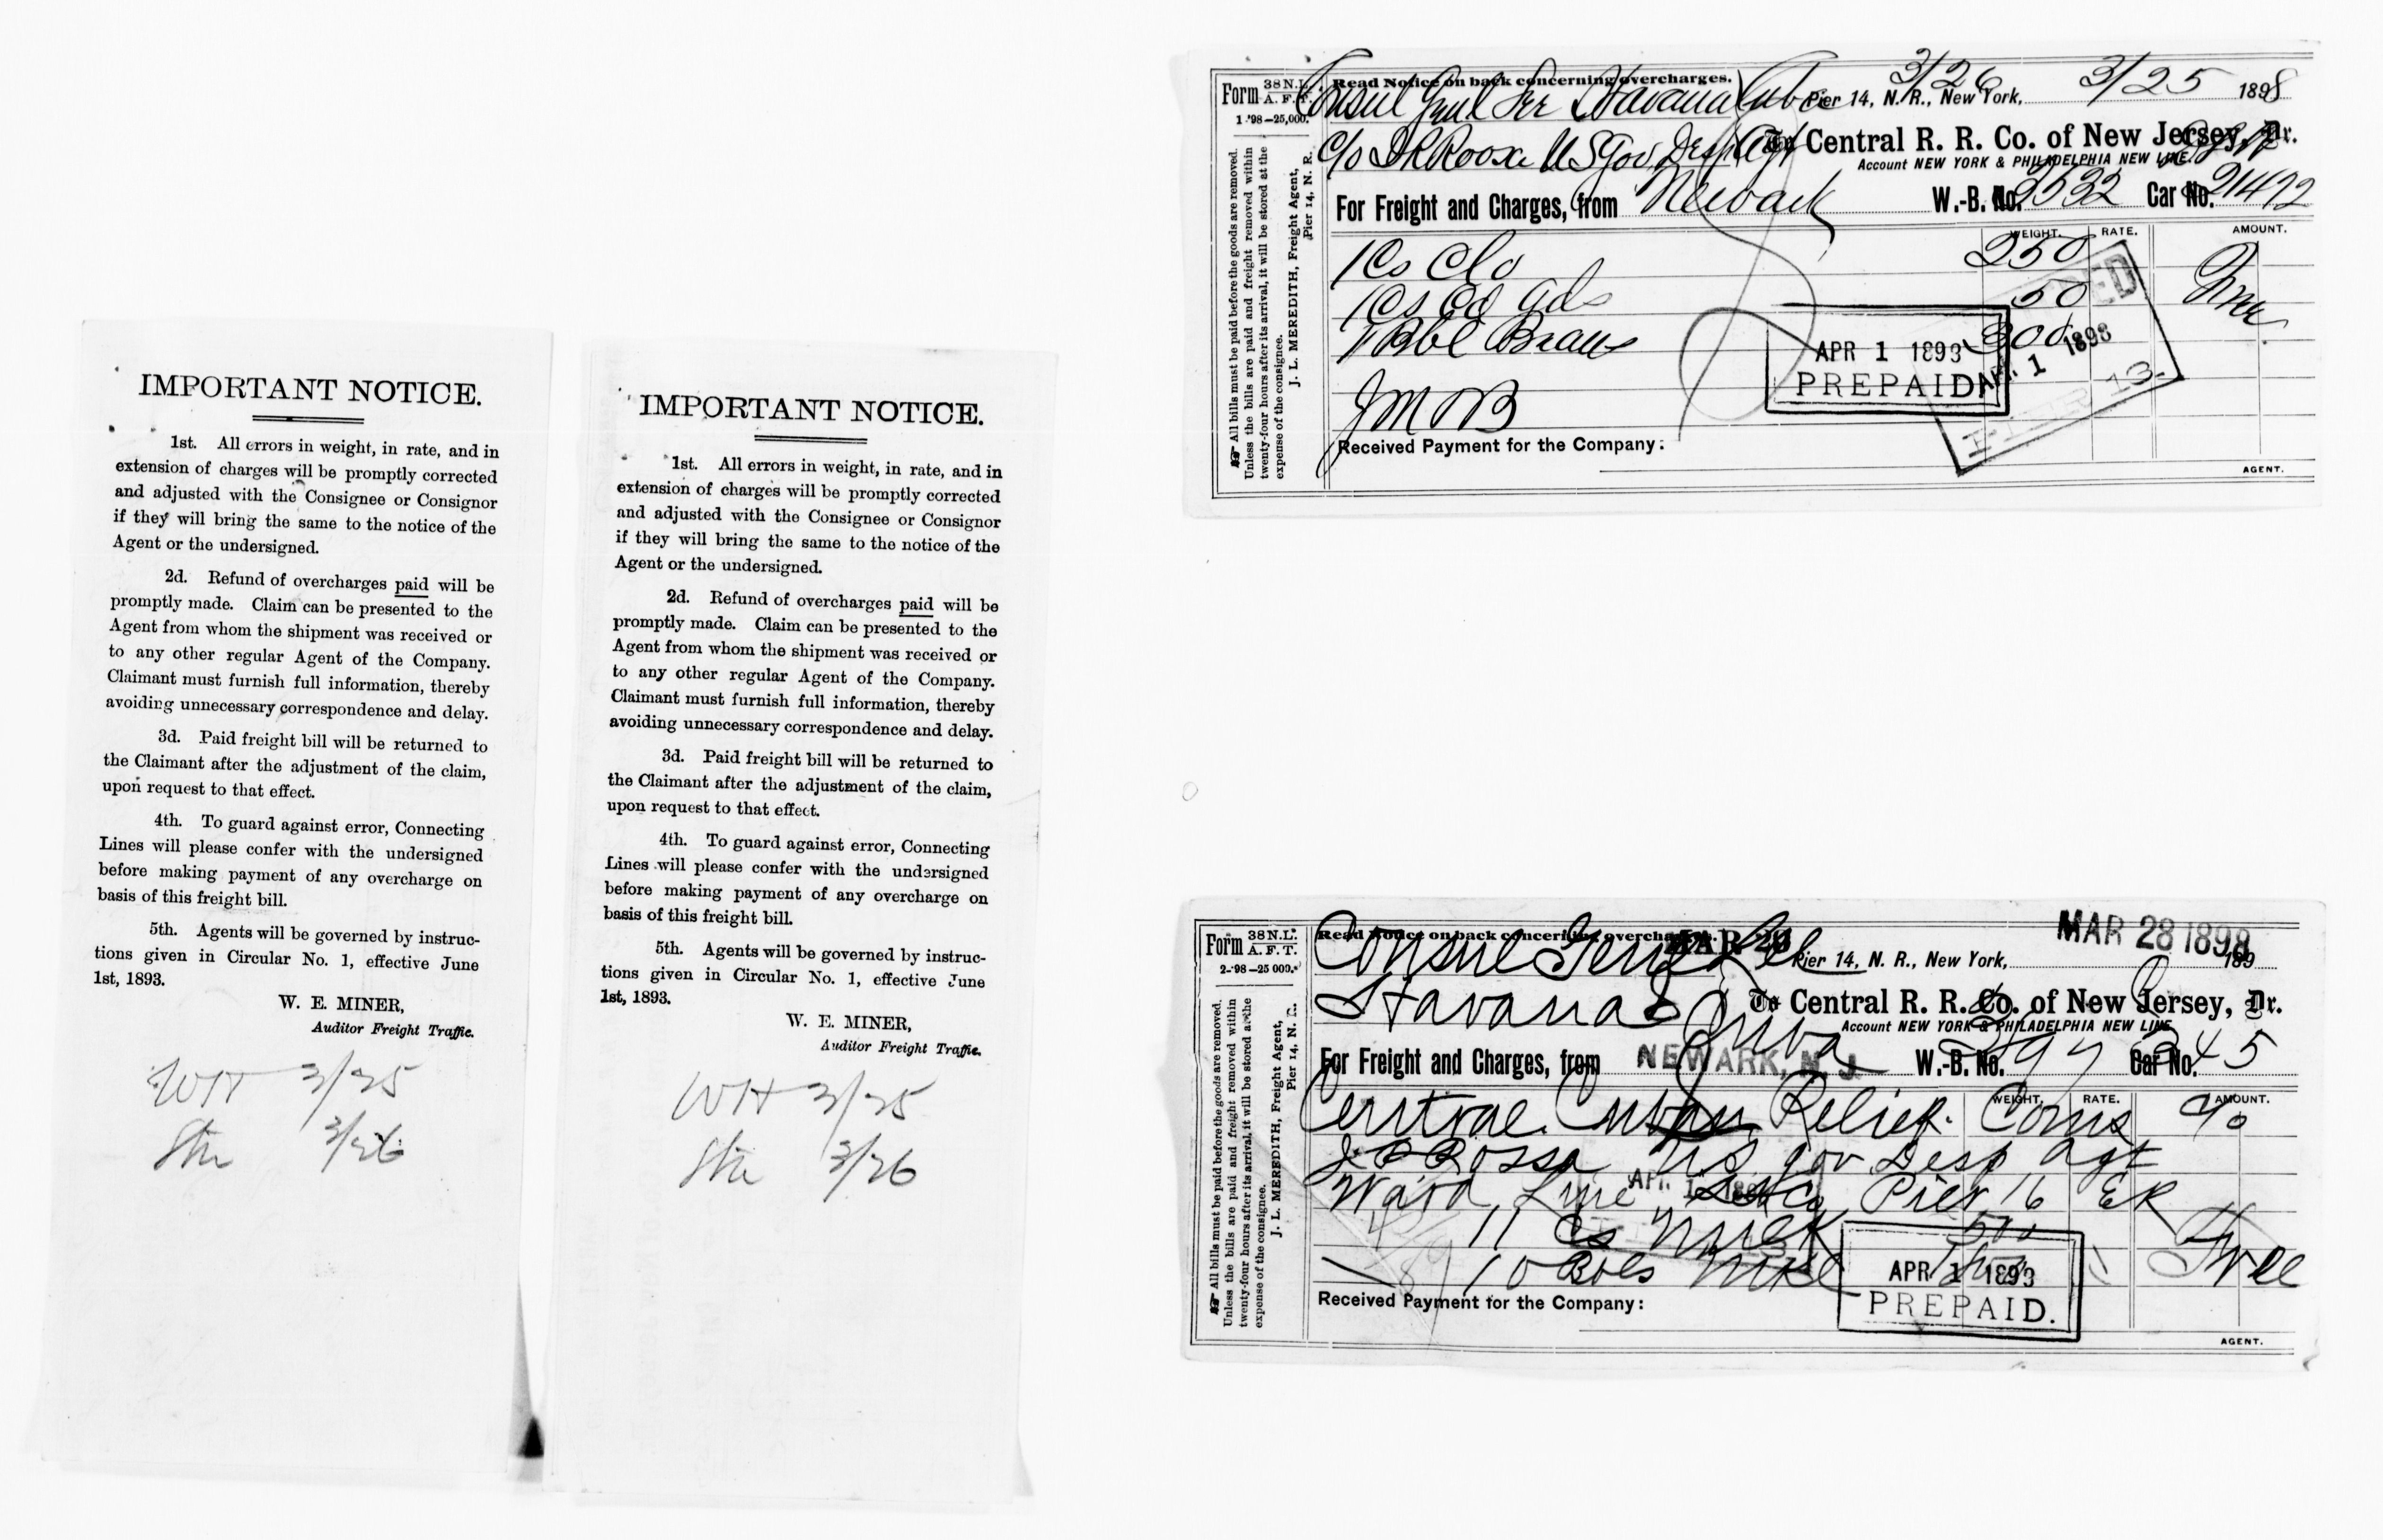 IMPORTANT NOTICE.
1st. All errors in weight, in rate, and in
extension of charges will be promptly corrected
and adjusted with the Consignee or Consignor
if they will bring the same to the notice of the
Agent or the undersigned.
2d. Refund of overcharges paid will be
promptly made. Claim can be presented to the
Agent from whom the shipment was received or
to any other regular Agent of the Company.
Claimant must furnish full information, thereby
avoiding unnecessary correspondence and delay.
3d. Paid freight bill will be returned to
the Claimant after the adjustment of the claim,
upon request to that effect.
4th. To guard against error, Connecting
Lines will please confer with the undersigned
before making payment of any overcharge on
basis of this freight bill.
5th. Agents will be governed by instruc-
tions given in Circular No. 1, effective June
1st, 1893.
W. E. MINER,
Auditor Freight Traffic.
WH 3/25
3/26
IMPORTANT NOTICE.
1st. All errors in weight, in rate, and in
extension of charges will be promptly corrected
and adjusted with the Consignee or Consignor
if they will bring the same to the notice of the
Agent or the undersigned.
2d. Refund of overcharges paid will be
promptly made. Claim can be presented to the
Agent from whom the shipment was received or
to any other regular Agent of the Company.
Claimant must furnish full information, thereby
avoiding unnecessary correspondence and delay.
3d. Paid freight bill will be returned to
the Claimant after the adjustment of the claim,
upon request to that effect.
4th. To guard against error, Connecting
Lines will please confer with the undersigned
before making payment of any overcharge on
basis of this freight bill.
5th. Agents will be governed by instruc-
tions given in Circular No. 1, effective June
1st, 1893.
W. E. MINER,
Auditor Freight Traffic.
WH 3/25
3/26
Form 38 N.L. A. F. T.
1-'98—25,000.
All bills must be paid before the goods are removed.
Unless the bills are paid and freight removed within
twenty-four hours after its arrival, it will be stored at the
expense of the consignee.
J. L. MEREDITH, Freight Agent,
Pier 14, N. R.
Read Notice on back concerning overcharges.
3/26 3/25
Consul Genl Havana Cuba Pier 14, N. R., New York, 1898
c/o U S Gov Desp Agt To Central R. R. Co. of New Jersey, Dr.
Account NEW YORK & PHILADELPHIA NEW LINE.
For Freight and Charges, from Newark W.-B. No. 2532 Car No. 21472
WEIGHT. RATE. AMOUNT.
1 Cs Clo 250
1 Cs Cd Gds 50
1 Bbl Beans 300
APR 1 1893
PREPAID
APR. 1 1898
PIER 13.
Received Payment for the Company:
AGENT.
Form 38 N.L. A. F. T.
2-'98—25 000.
All bills must be paid before the goods are removed.
Unless the bills are paid and freight removed within
twenty-four hours after its arrival, it will be stored at the
expense of the consignee.
J. L. MEREDITH, Freight Agent,
Pier 14, N. R.
Read Notice on back concerning overcharges.
MAR 28 1898
Consul General Pier 14, N. R., New York, 189
Havana To Central R. R. Co. of New Jersey, Dr.
Account NEW YORK & PHILADELPHIA NEW LINE
Cuba
For Freight and Charges, from NEWARK, N. J. W.-B. No. Car No.
WEIGHT. RATE. AMOUNT.
Central Cuban Relief Coms c/o
US Gov Desp Agt
Ward Line Pier 16 ER
11 Cs Milk 500
10 Bbls Free
APR 1 1893
PREPAID.
Received Payment for the Company:
AGENT.